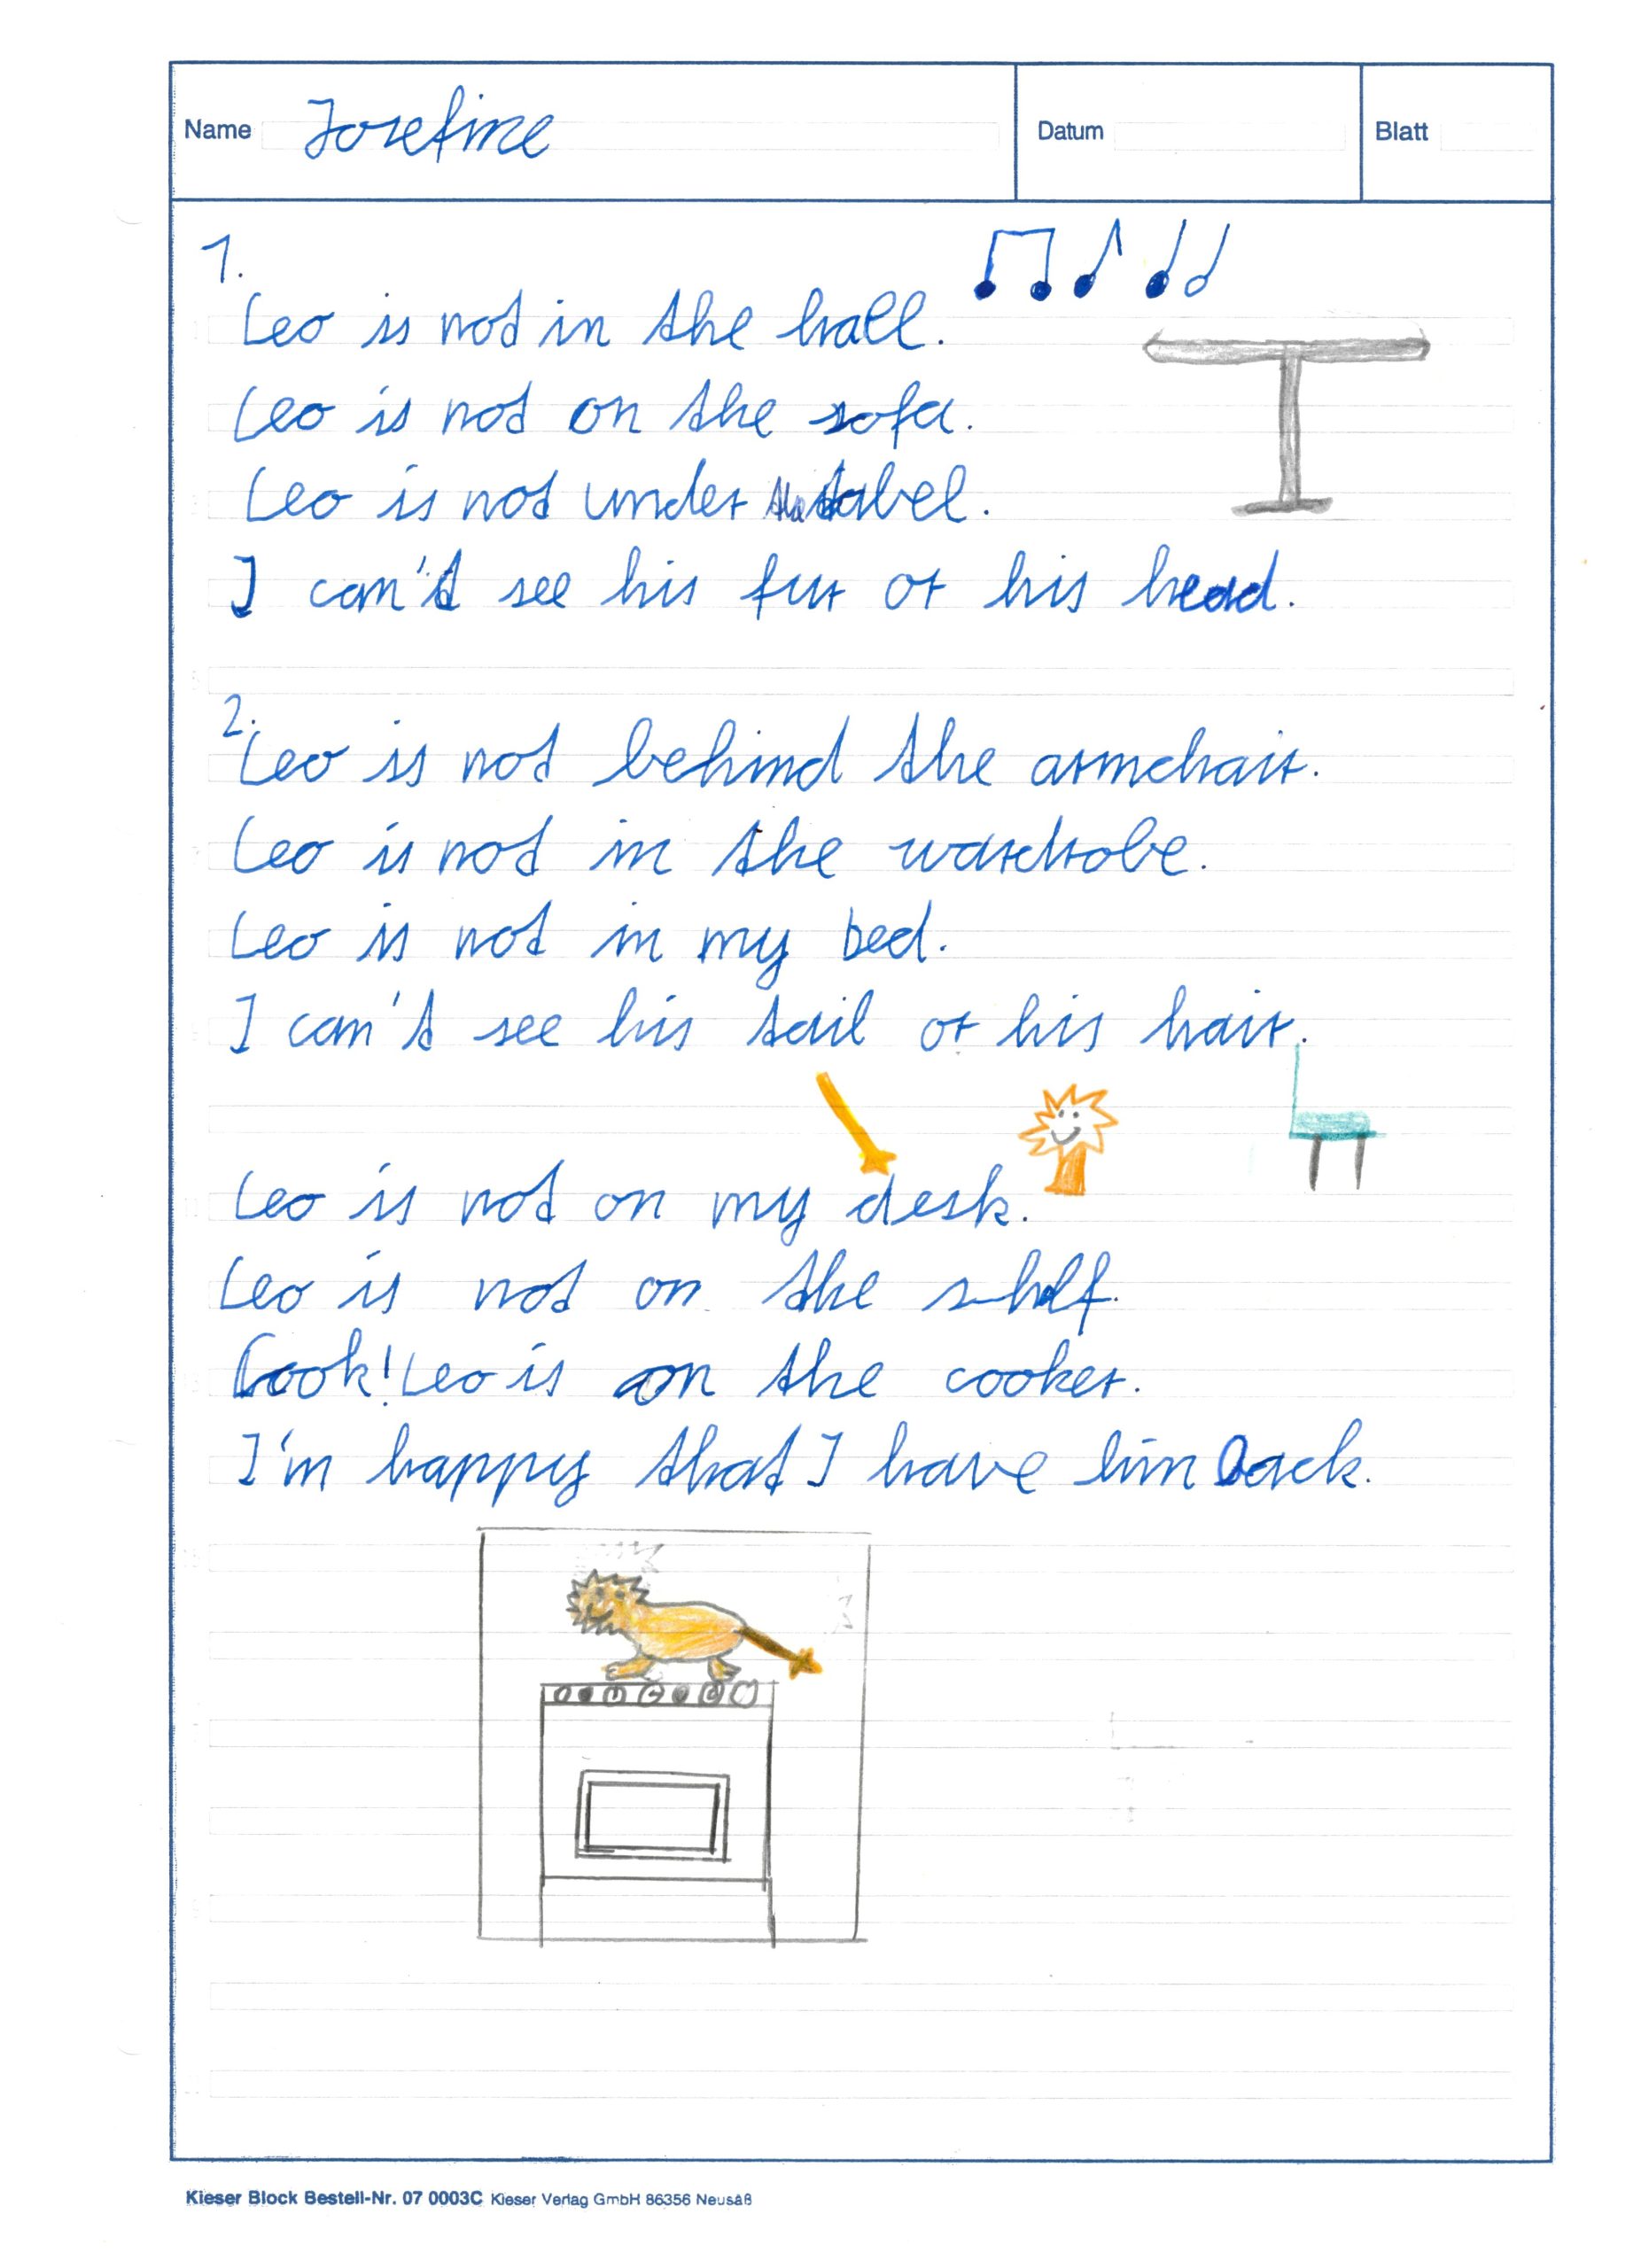 Name Josefine Datum Blatt
1.
Leo is not in the hall.
Leo is not on the sofa.
Leo is not under the tabel.
I can't see his fur or his head.
2.
Leo is not behind the armchair.
Leo is not in the wardrobe.
Leo is not in my bed.
I can't see his tail or his hair.
Leo is not on my desk.
Leo is not on the shelf.
Look! Leo is on the cooker.
I'm happy that I have him back.
Kieser Block Bestell-Nr. 07 0003C Kieser Verlag GmbH 86356 Neusäß